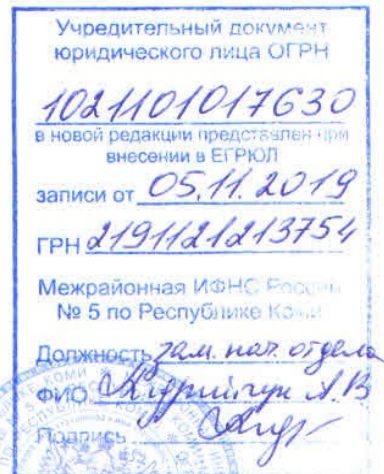 Учредительный документ
юридического лица ОГРН
1021101017630
в новой редакции представлен при
внесении в ЕГРЮЛ
записи от 05.11.2019
ГРН 2191121213754
Межрайонная ИФНС России
№ 5 по Республике Коми
Должность зам. нач. отдела
ФИО А.В
Подпись